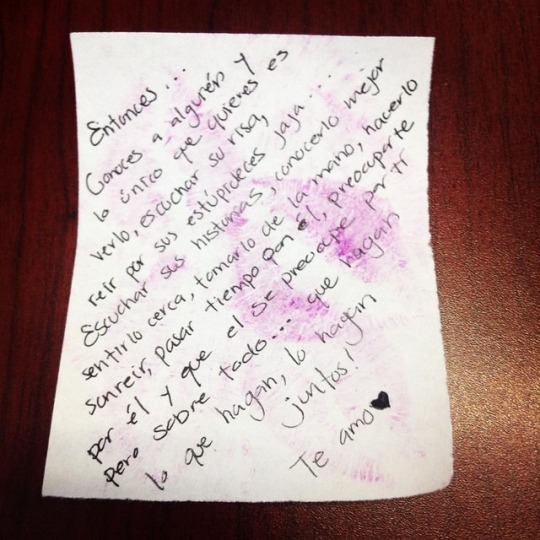 Entonces...
Conoces a alguién y
lo único que quieres es
verlo, escuchar su risa,
reir por sus estúpideces jaja...
Escuchar sus historias, conocerlo mejor
sentirlo cerca, tomarlo de la mano, hacerlo
sonreir, pasar tiempo con él, preocuparte
por él y que el se preocupe por ti
pero sobre todo... que hagan
lo que hagan, lo hagan
juntos!
Te amo♥